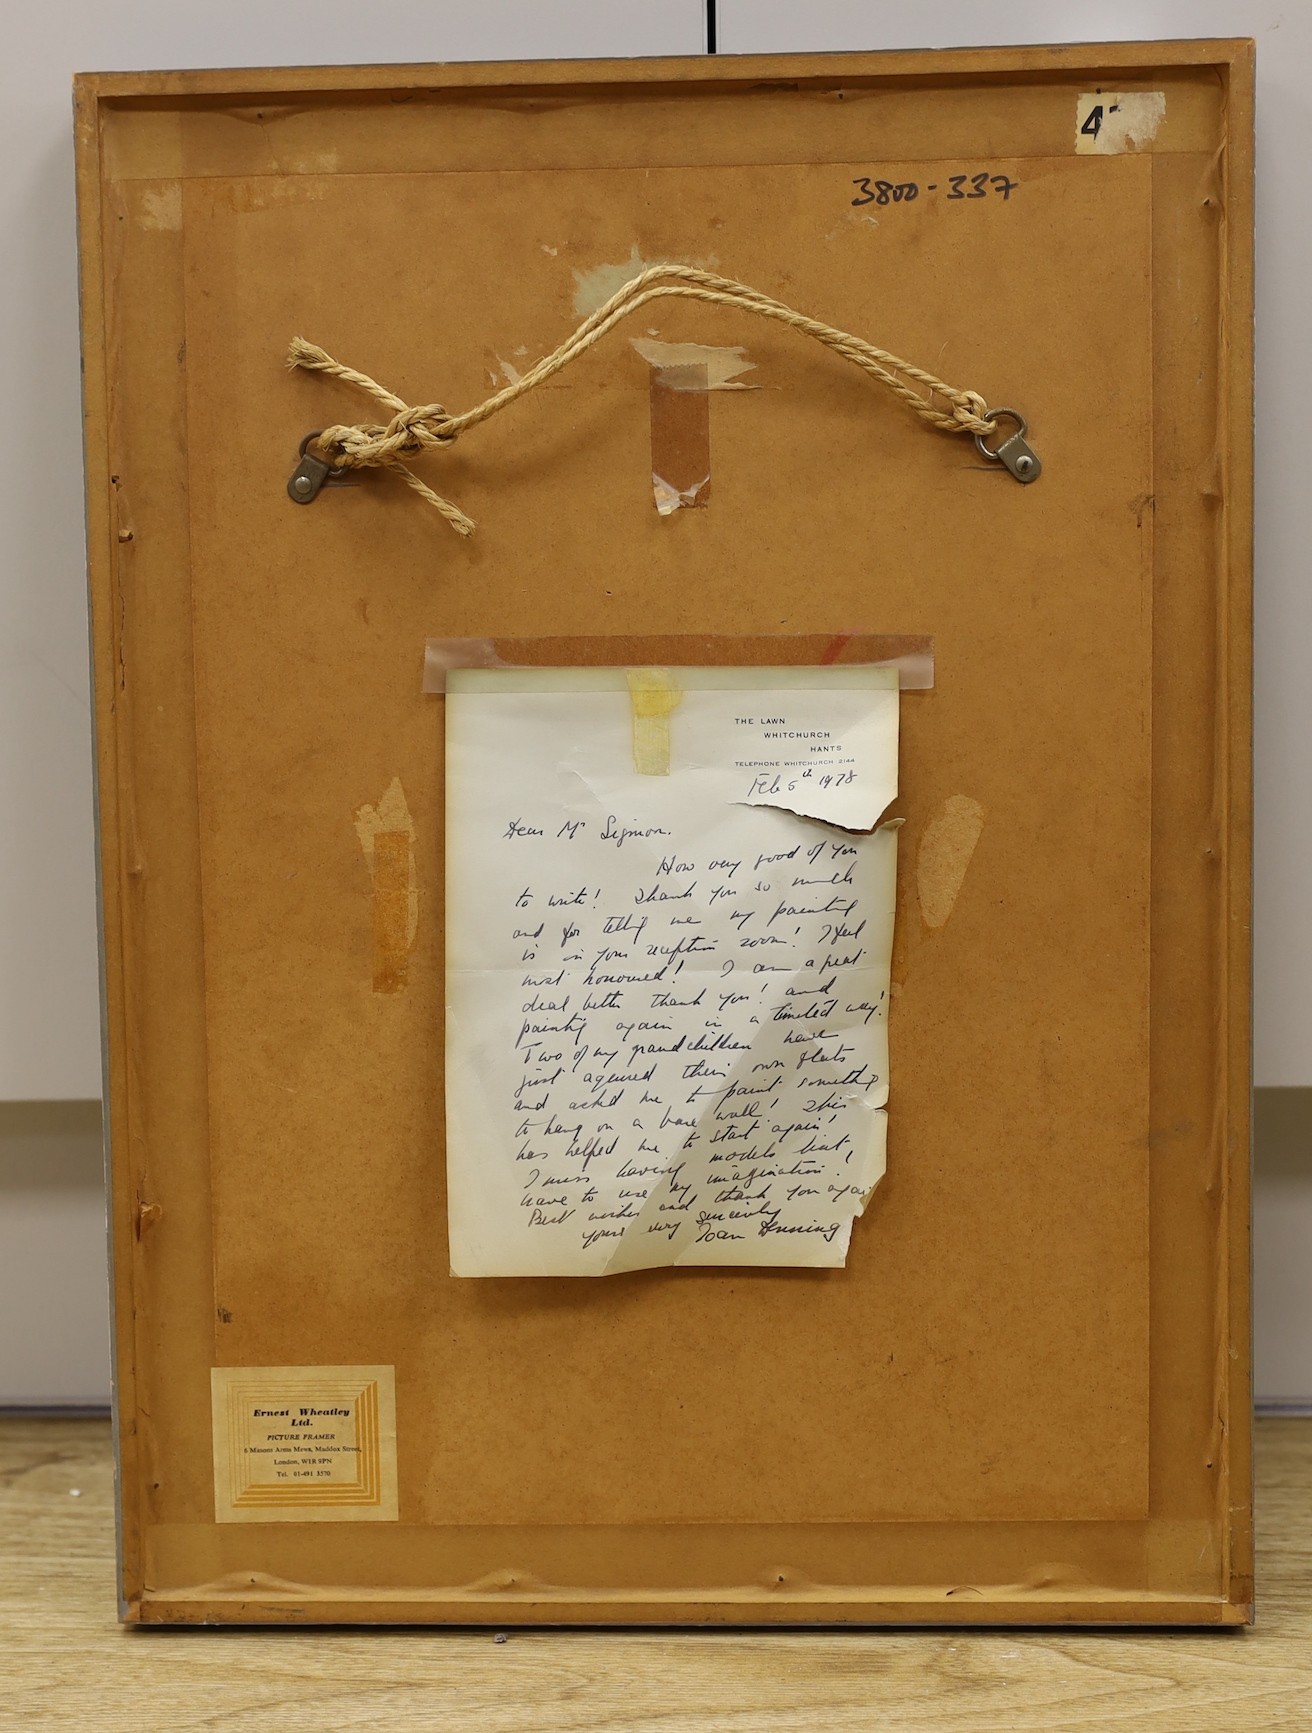 4
3800-337
THE LAWN
WHITCHURCH
HANTS
TELEPHONE WHITCHURCH 2144
Feb 5th 1978
Dear Mr Sigmon.
How very good of you
to write! Thank you so much
and for telling me my painting
is in your reception room! I feel
most honoured! I am a great
deal better thank you! and
painting again in a limited way!
Two of my grandchildren have
just aquired their own flats
and asked me to paint something
to hang on a bare wall! This
has helped me to start again!
I miss having models but
have to use my imagination!
Best wishes and thank you again
yours very sincerely
Joan Denning
Ernest Wheatley
Ltd.
PICTURE FRAMER
6 Masons Arms Mews, Maddox Street,
London, W1R 9PN
Tel. 01-491 3570